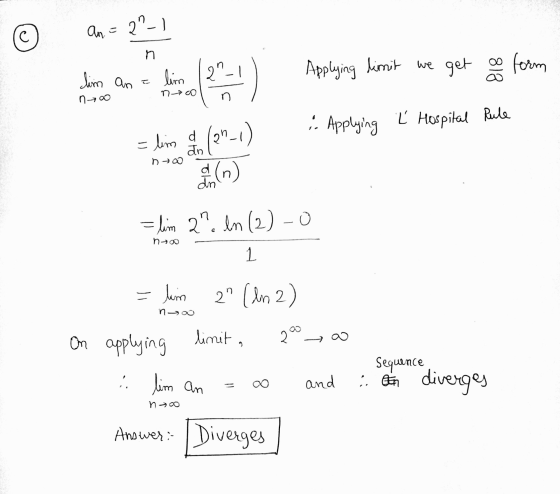 (c) an = 2^n - 1 / n
lim n→∞ an = lim n→∞ (2^n - 1 / n) Applying limit we get ∞/∞ form
= lim n→∞ d/dn (2^n - 1) / d/dn (n) ∴ Applying L' Hospital Rule
= lim n→∞ 2^n . ln(2) - 0 / 1
= lim n→∞ 2^n (ln 2)
On applying limit, 2^∞ → ∞
∴ lim n→∞ an = ∞ and ∴ Sequence diverges
Answer:- Diverges